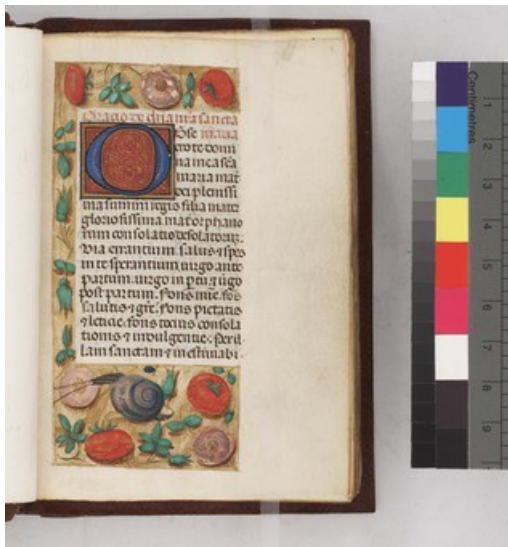 Oracio de d̄na n̄ra sancta
Ob se maria
cro te domi
na mea scā
maria mat̄
dei pleniſſi
ma summi regis filia mater
gloriosissima mat̄ orphano
rum consolatio desolatoruȝ.
Via errantium salus ⁊ spes
in te sperantium. virgo ante
partum. virgo in p̄tu ⁊ v̄go
post partum. Fons mīe. fōs
salutis ⁊ gr̄e. fons pietatis
⁊ leticie. fons tocius consola
tionis ⁊ indulgentie. Per il
lam sanctam ⁊ inestimabi
Centimetres
1
2
3
4
5
6
7
8
9